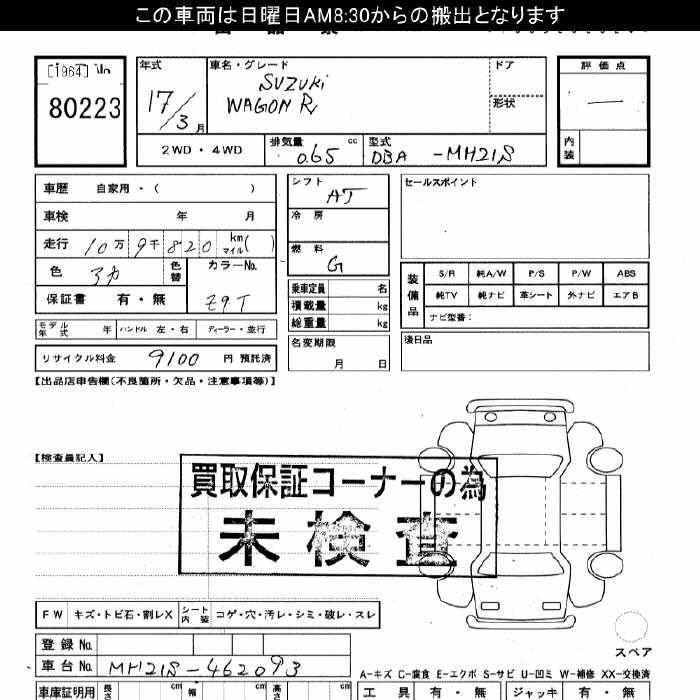 この車両は日曜日AM8:30からの搬出となります
80223
年式
17/3月
車名・グレード
SUZUKI
WAGON R
ドア
形状
評価点
—
内装
2WD・4WD
排気量 cc
0.65
型式
DBA -MH21S
車歴 自家用・( )
車検 年 月
走行 10万9千820 kmマイル( )
色
色替
カラーNo.
Z9T
保証書 有・無
モデル年式 年 ハンドル 左・右 ディーラー・並行
リサイクル料金 9100 円 預託済
シフト
AT
冷房
燃料
G
乗車定員 名
積載量 kg
総重量 kg
名変期限
月 日
セールスポイント
装備品
S/R 純A/W P/S P/W ABS
純TV 純ナビ 革シート 外ナビ エアB
ナビ型番：
後日品
【出品店申告欄(不良箇所・欠品・注意事項等)】
【検査員記入】
買取保証コーナーの為
未検査
FW キズ・トビ石・割レX シート内装 コゲ・穴・汚レ・シミ・破レ・スレ
スペア
登録No.
車台No. MH21S-462093
A-キズ C-腐食 E-エクボ S-サビ U-凹ミ W-補修 XX-交換済
車庫証明用 長さ cm 幅 cm 高さ cm
工具 有・無 ジャッキ 有・無